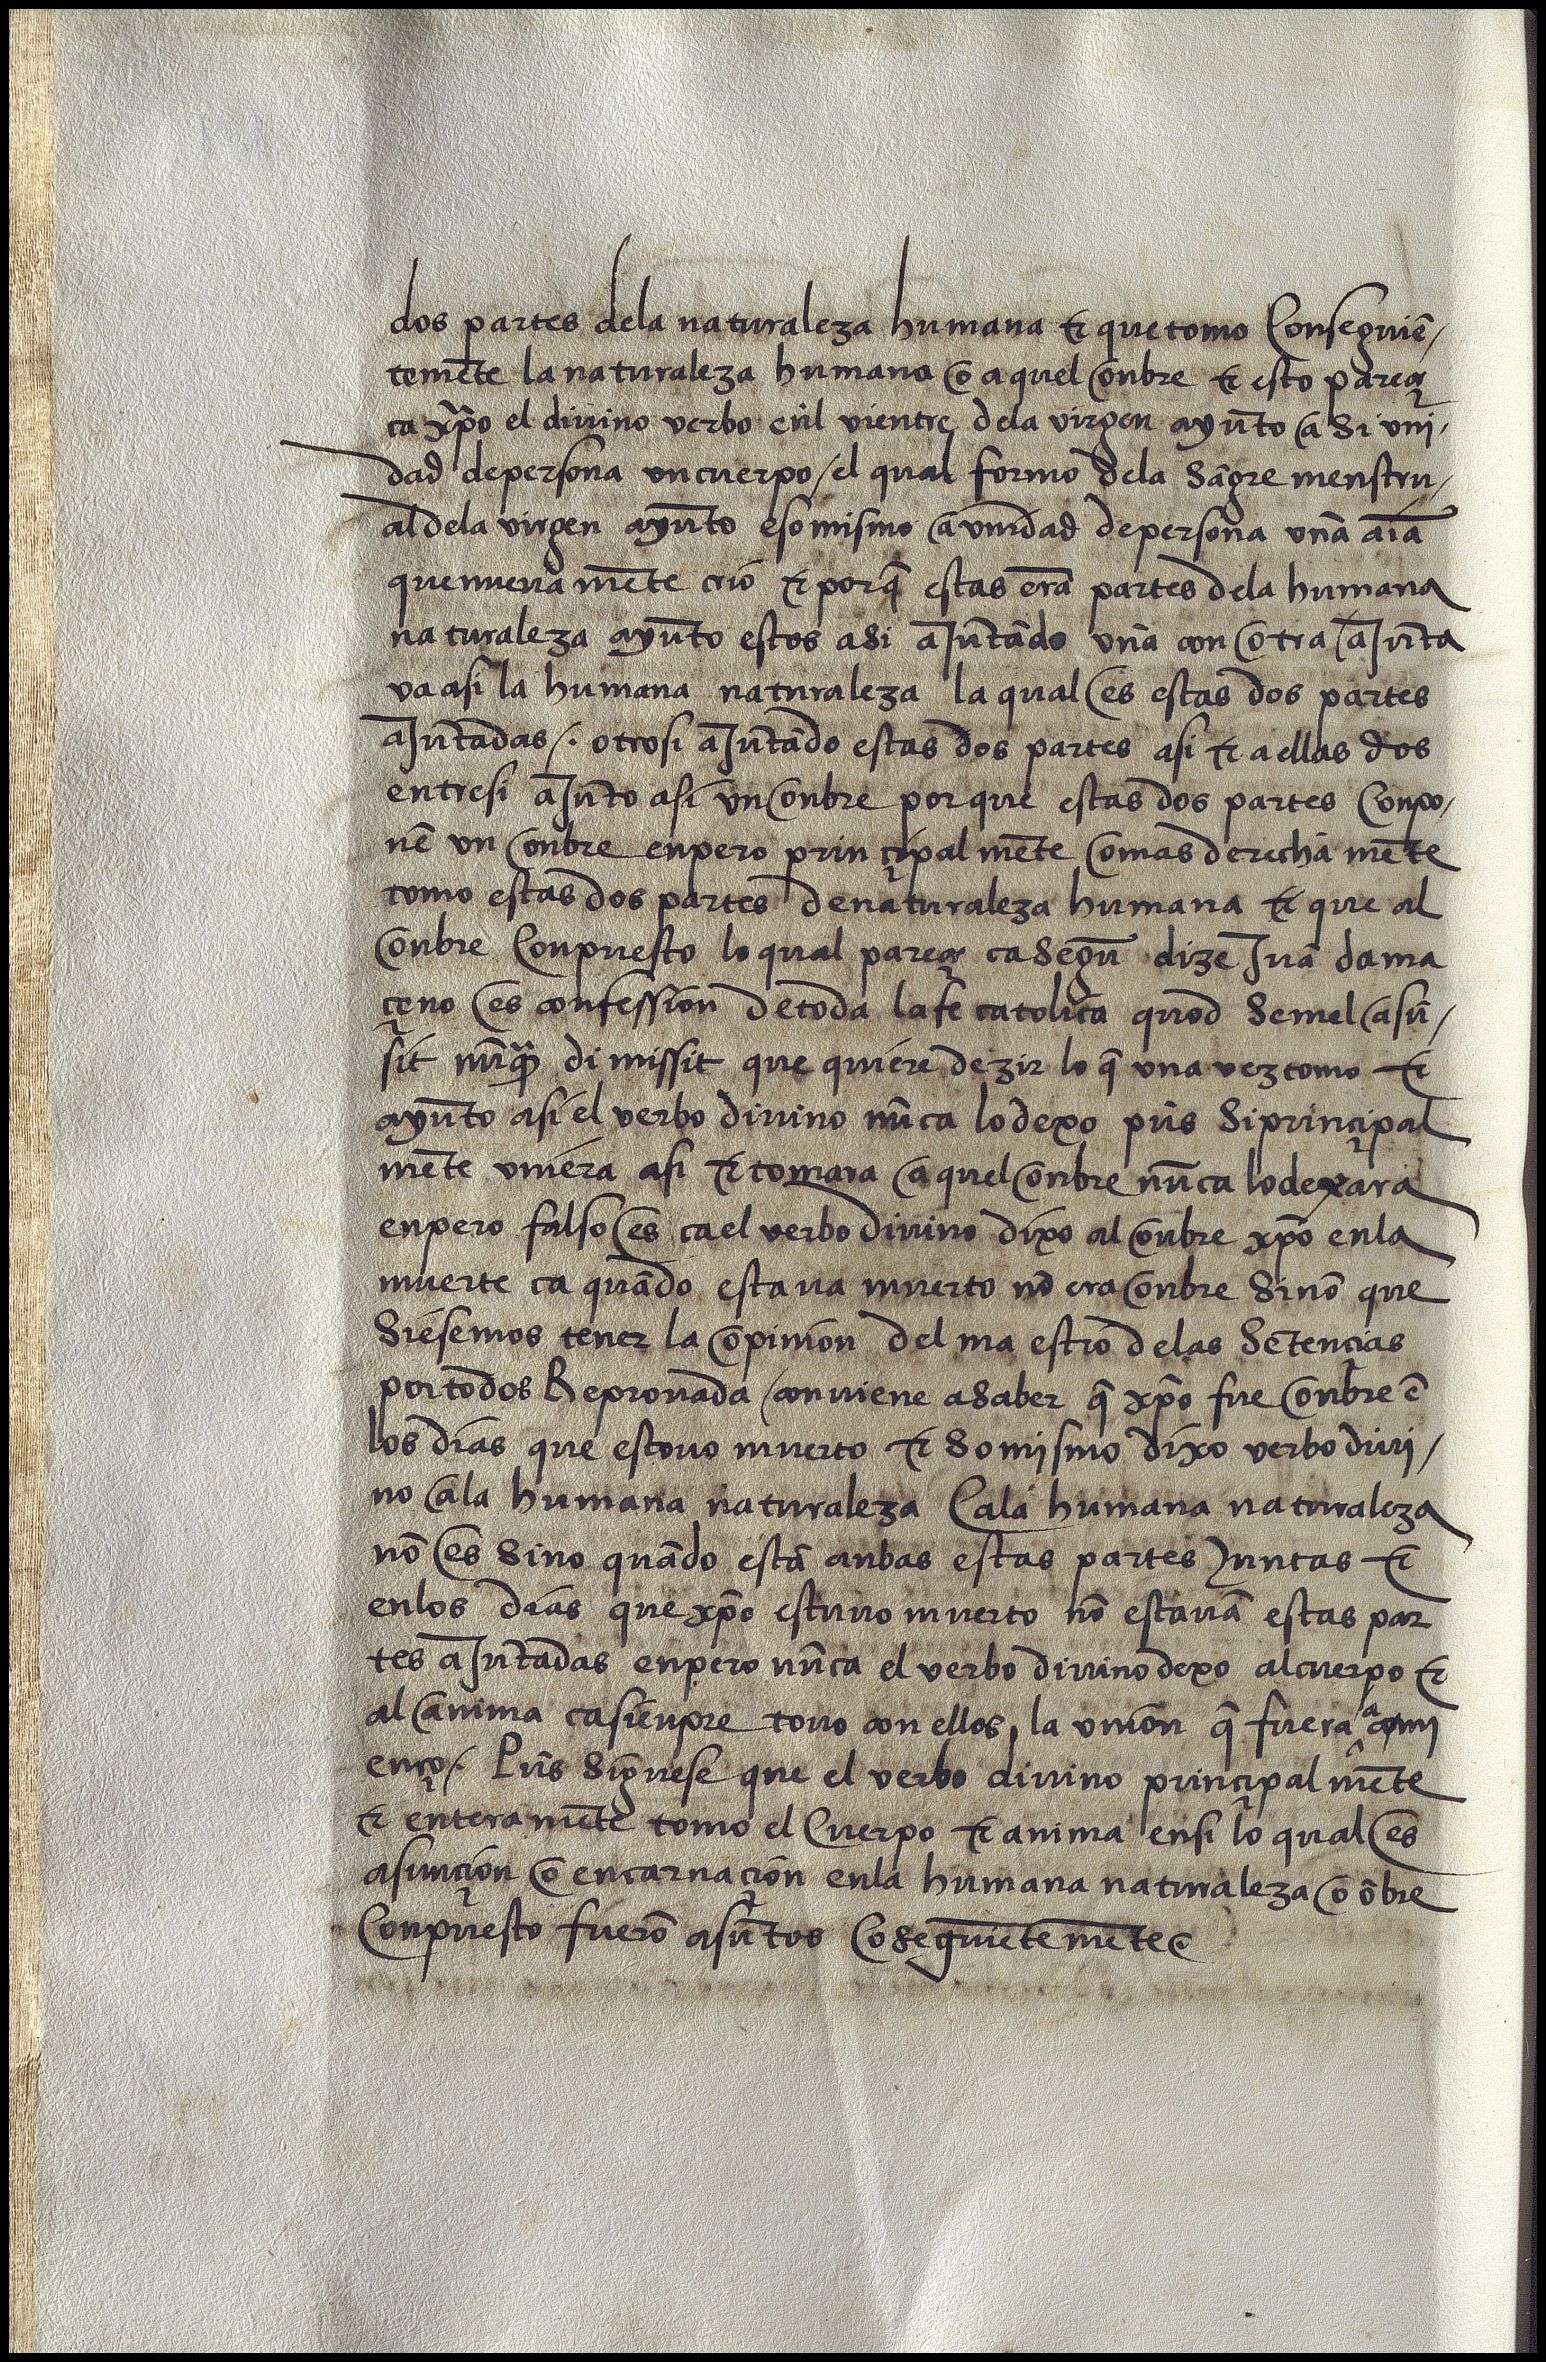 dos partes dela naturaleza humana & que tomo Conseguiẽ/
temẽte la naturaleza humana o aquel onbre & esto pareç
ca xp̃o el diuino verbo eñl vientre dela virgen ayũto a si vni/
dad de persona un cuerpo / el qual formo dela sãgre menstru/
al dela virgen ayũto eso mismo a vnidad de persona vna aĩa
que nueuamẽte crio & porq̃ estas erã partes dela humana
naturaleza ayũto estos asi aJũtãdo vna con otra aJũta
ua asi la humana naturaleza la qual es estas dos partes
aJũtadas /. otrosi aJũtãdo estas dos partes asi & a ellas dos
entresi aJũto asi un onbre por que estas dos partes Conpo/
nẽ un onbre enpero prinçipalmẽte o mas derecha mẽte
tomo estas dos partes de naturaleza humana & que al
onbre Conpuesto lo qual pareç ca segũ dize Juã dama
çeno es confession de toda la fe catolica quod semel asũ/
sit nũq̃ dimissit que quiere dezir lo q̃ una vez tomo &
ayũto asi el verbo diuino nũca lo dexo pũs si prinçipal
mẽte uniera asi & tomara aquel onbre nũca lo dexara
enpero falso es ca el verbo diuino dixo al onbre xp̃o en la
muerte ca quãdo estaua muerto nõ era onbre sinõ que
siesemos tener la opinion del maestro delas sẽtençias
por todos Reprouada / conuiene a saber q̃ xp̃o fue onbre ẽ
los dias que estouo muerto & so mismo dixo verbo diui/
no ala humana naturaleza Ca la humana naturaleza
nõ es sino quãdo estã anbas estas partes Juntas &
enlos dias que xp̃o estuuo muerto nõ estauã estas par
tes aJũtadas enpero nũca el verbo diuino dexo al cuerpo &
al anima ca sienpre touo con ellos la union q̃ fuera a comi
enço /. Pũs siguese que el verbo diuino prinçipalmẽte
& enteramẽte tomo el Cuerpo & anima ensi lo qual es
asunçion o encarnaçion enla humana naturaleza o õbre
Conpuesto fuerõ asũtos Coseguiẽtemẽte